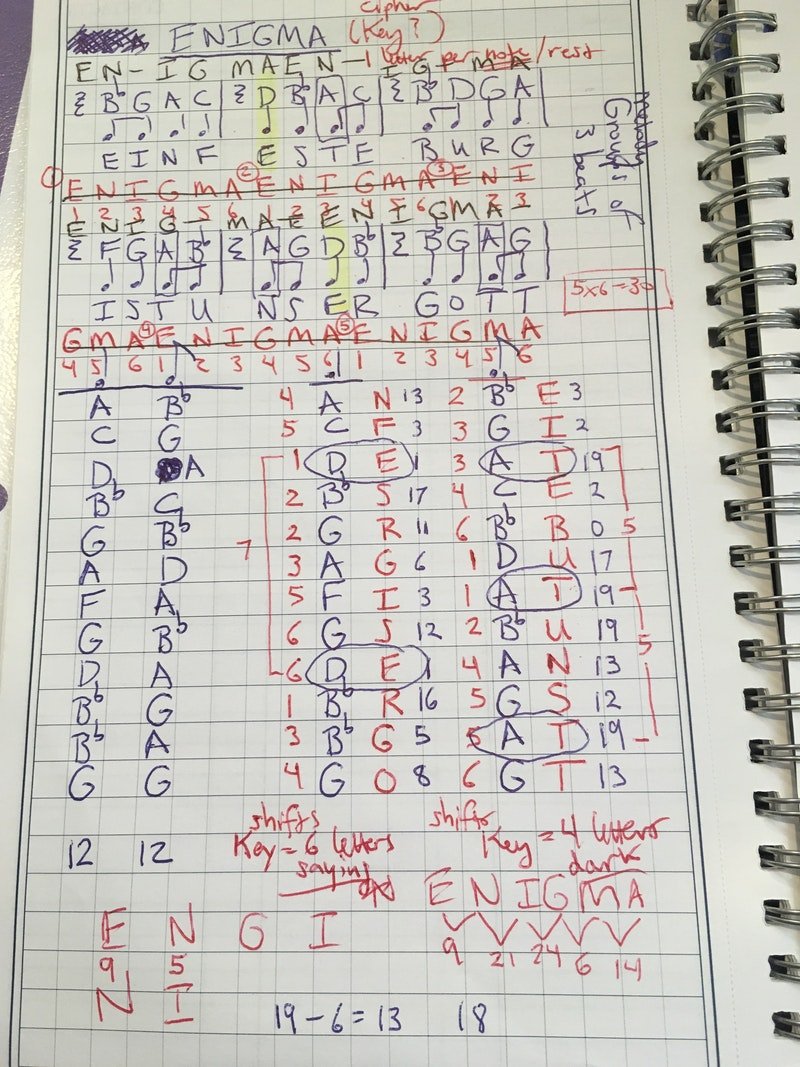 cipher
ENIGMA (Key?)
EN-IG MAEN-IGMA
1 letter per note/rest
B♭ G A C | D B♭ A C | B♭ D G A |
E I N F E S T E B U R G
① E N I G M A ② E N I G M A ③ E N I
1 2 3 4 5 6 1 2 3 4 5 6 1 2 3
E N I G - M A E E N I G M A I
F G A B♭ | A G D B♭ | B♭ G A G |
I S T U N S E R G O T T
G M A ④ E N I G M A ⑤ E N I G M A
4 5 6 1 2 3 4 5 6 1 2 3 4 5 6
Groups of
3 beats
5x6=30
A B♭ 4 A N 13 2 B♭ E 3
C G 5 C F 3 3 G I 2
D A 1 D E 1 3 A T 19
B♭ C 2 B♭ S 17 4 C E 2
G B♭ 2 G R 11 6 B♭ B 0 5
A D 7 3 A G 6 1 D U 17
F A 5 F I 3 1 A T 19
G B♭ 6 G S 12 2 B♭ U 19
D A 6 D E 1 4 A N 13 5
B♭ G 1 B♭ R 16 5 G S 12
B♭ A 3 B♭ G 5 5 A T 19
G G 4 G O 8 6 G T 13
12 12
shifts
Key = 6 letters
saying
shifts
Key = 4 letters
dark
E N I G M A
9 21 24 6 14
E N G I
9 5
N I
19-6=13 18